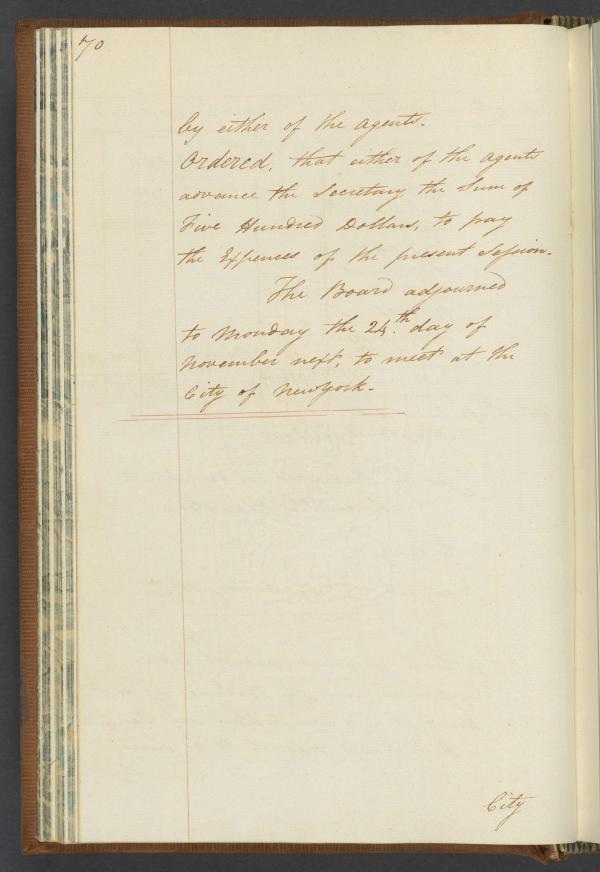 70
by either of the agents.
Ordered, that either of the agents
advance the Secretary the Sum of
Five Hundred Dollars, to pay
the Expences of the present Session.
The Board adjourned
to Monday the 24.th day of
November next, to meet at the
City of New York.
City